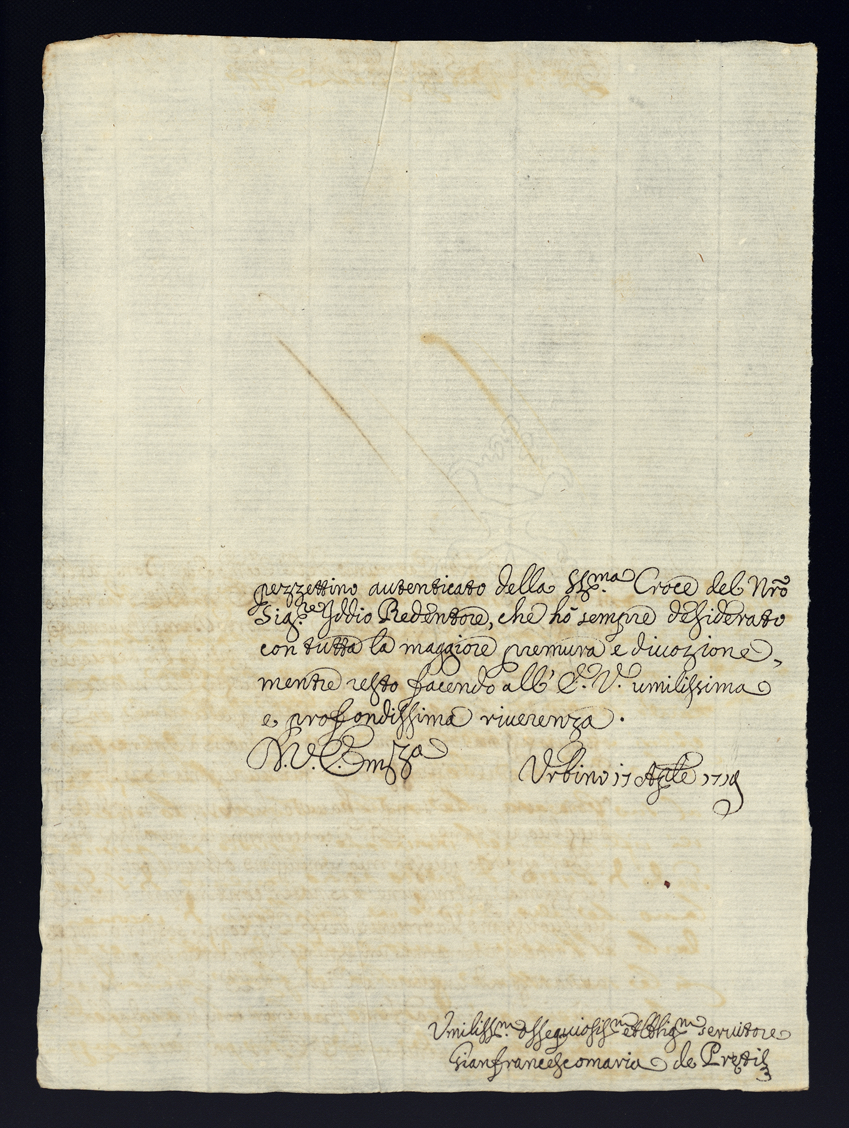 pezzettino autenticato della SS.ma Croce del Nrõ
Sig.re Iddio Redentore, che hò sempre desiderato
con tutta la maggiore premura e divozione,
mentre resto facendo all' E. V. umilissima
e profondissima riverenza.
D. V. Eminza
Urbino 17 Aprile 1719
Umiliss.mo ossequiosiss.mo et obblig.mo servitore
Gianfrancescomaria de Pretis